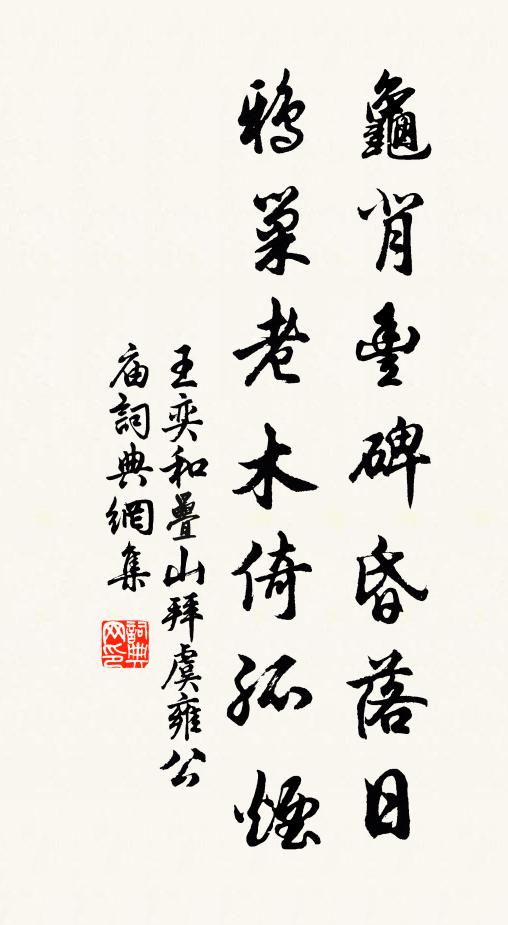 龜背豐碑昏落日
鴉巢老木倚孤煙
王奕和疊山拜虞雍公
廟詞典網集
詞典網印